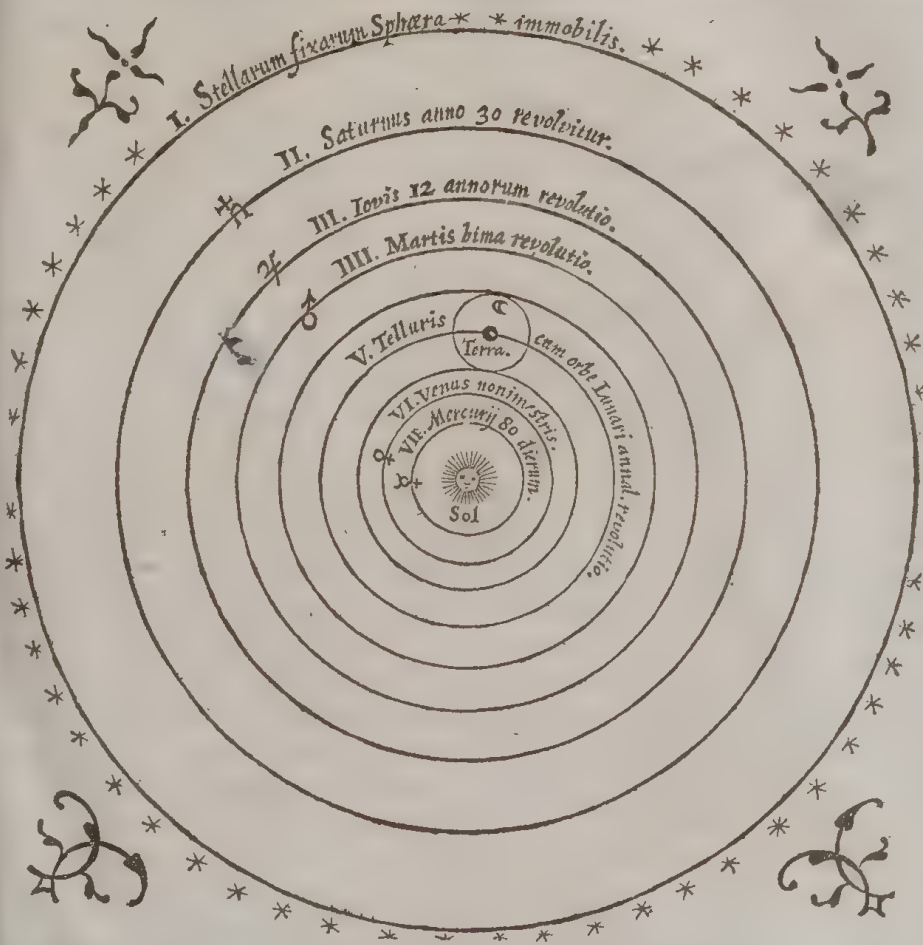 I. Stellarum fixarum Sphæra immobilis.
II. Saturnus anno 30 revolvitur.
III. Iovis 12 annorum revolutio.
IIII. Martis bima revolutio.
V. Telluris cum orbe Lunari annal. revolutio.
Terra.
VI. Venus nonimestris.
VII. Mercurij 80 dierum.
Sol